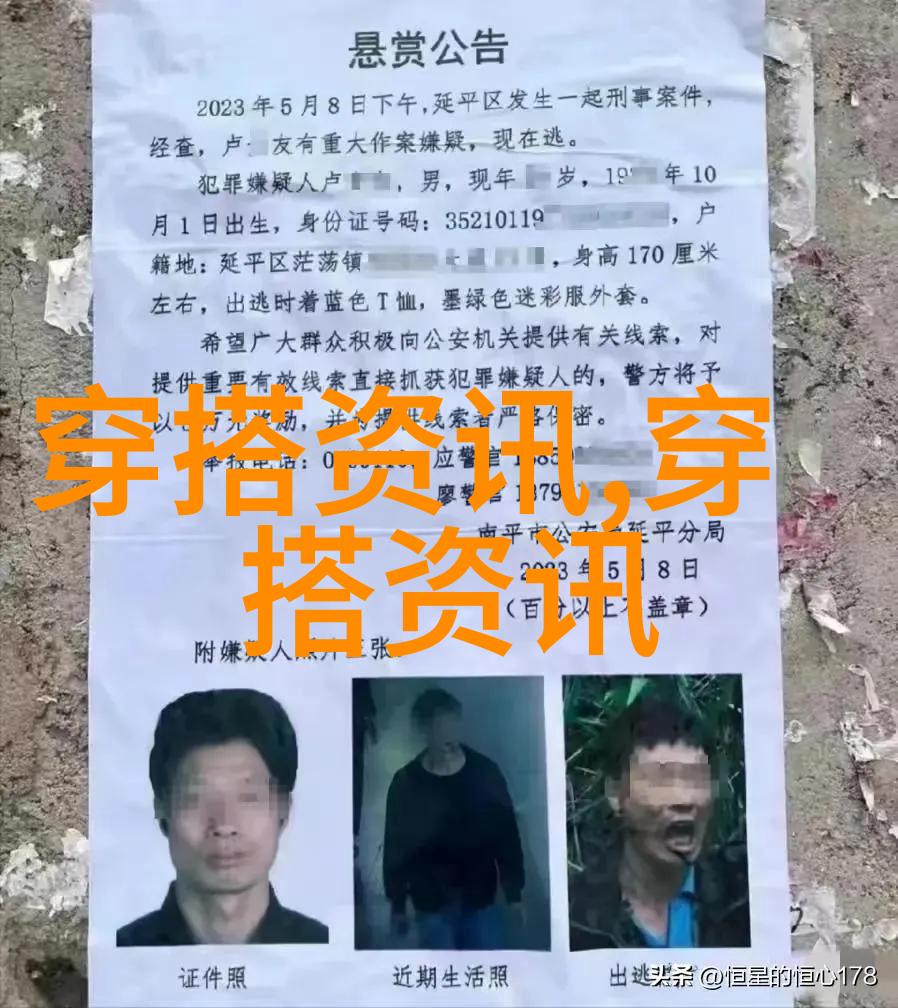 悬赏公告
2023年5月8日下午,延平区发生一起刑事案件,
经查,卢 友有重大作案嫌疑,现在逃。
犯罪嫌疑人卢 ,男,现年 岁,19 年10
月1日出生,身份证号码:35210119 ,户
籍地:延平区茫荡镇 ,身高170厘米
左右,出逃时着蓝色T恤,墨绿色迷彩服外套。
希望广大群众积极向公安机关提供有关线索,对
提供重要有效线索直接抓获犯罪嫌疑人的,警方将予
以 万元奖励,并为提供线索者严格保密。
穿搭资讯,穿
搭资讯
举报电话: 应警官
廖警官
南平市公安局延平分局
2023年5月8日
(百份以上不盖章)
附嫌疑人照片三张
证件照
近期生活照
出逃
头条 @恒星的恒心178